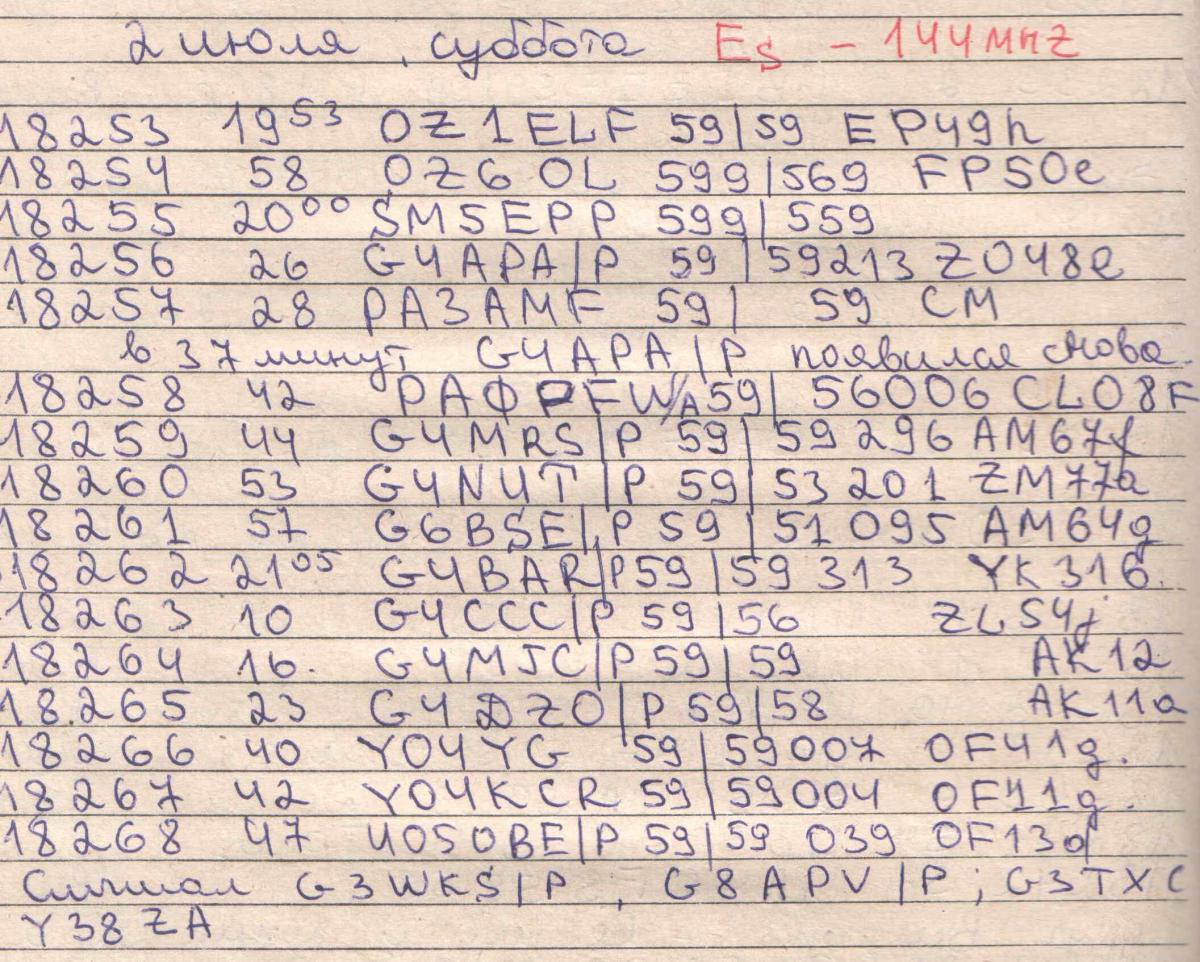 2 июля, суббота Es - 144 MHZ
18253 19⁵³ OZ1ELF 59/59 EP49h
18254 58 OZ6OL 599/569 FP50e
18255 20⁰⁰ SM5EPP 599/559
18256 26 G4APA/P 59/59213 ZO48e
18257 28 PA3AMF 59/ 59 CM
в 37 минут G4APA/P появился снова.
18258 42 PAФPFW/A 59/ 56006 CL08F
18259 44 G4MRS/P 59/ 59 296 AM67f
18260 53 G4NUT/P 59/ 53 201 ZM77a
18261 57 G6BSE/P 59/51 095 AM64g
18262 21⁰⁵ G4BAR/P59/59 313 YK31б.
18263 10 G4CCC/P 59/56 ZL54j
18264 16. G4MJC/P 59/59 AK12
18.265 23 G4DZO/P 59/58 AK11a
18266 40 YO4YG 59/59007 OF41g.
18267 42 YO4KCR 59/59004 OF11g.
18268 47 4O5OBE/P 59/59 039 OF13d
Слышал G3WKS/P, G8APV/P; G3TXC
Y38ZA